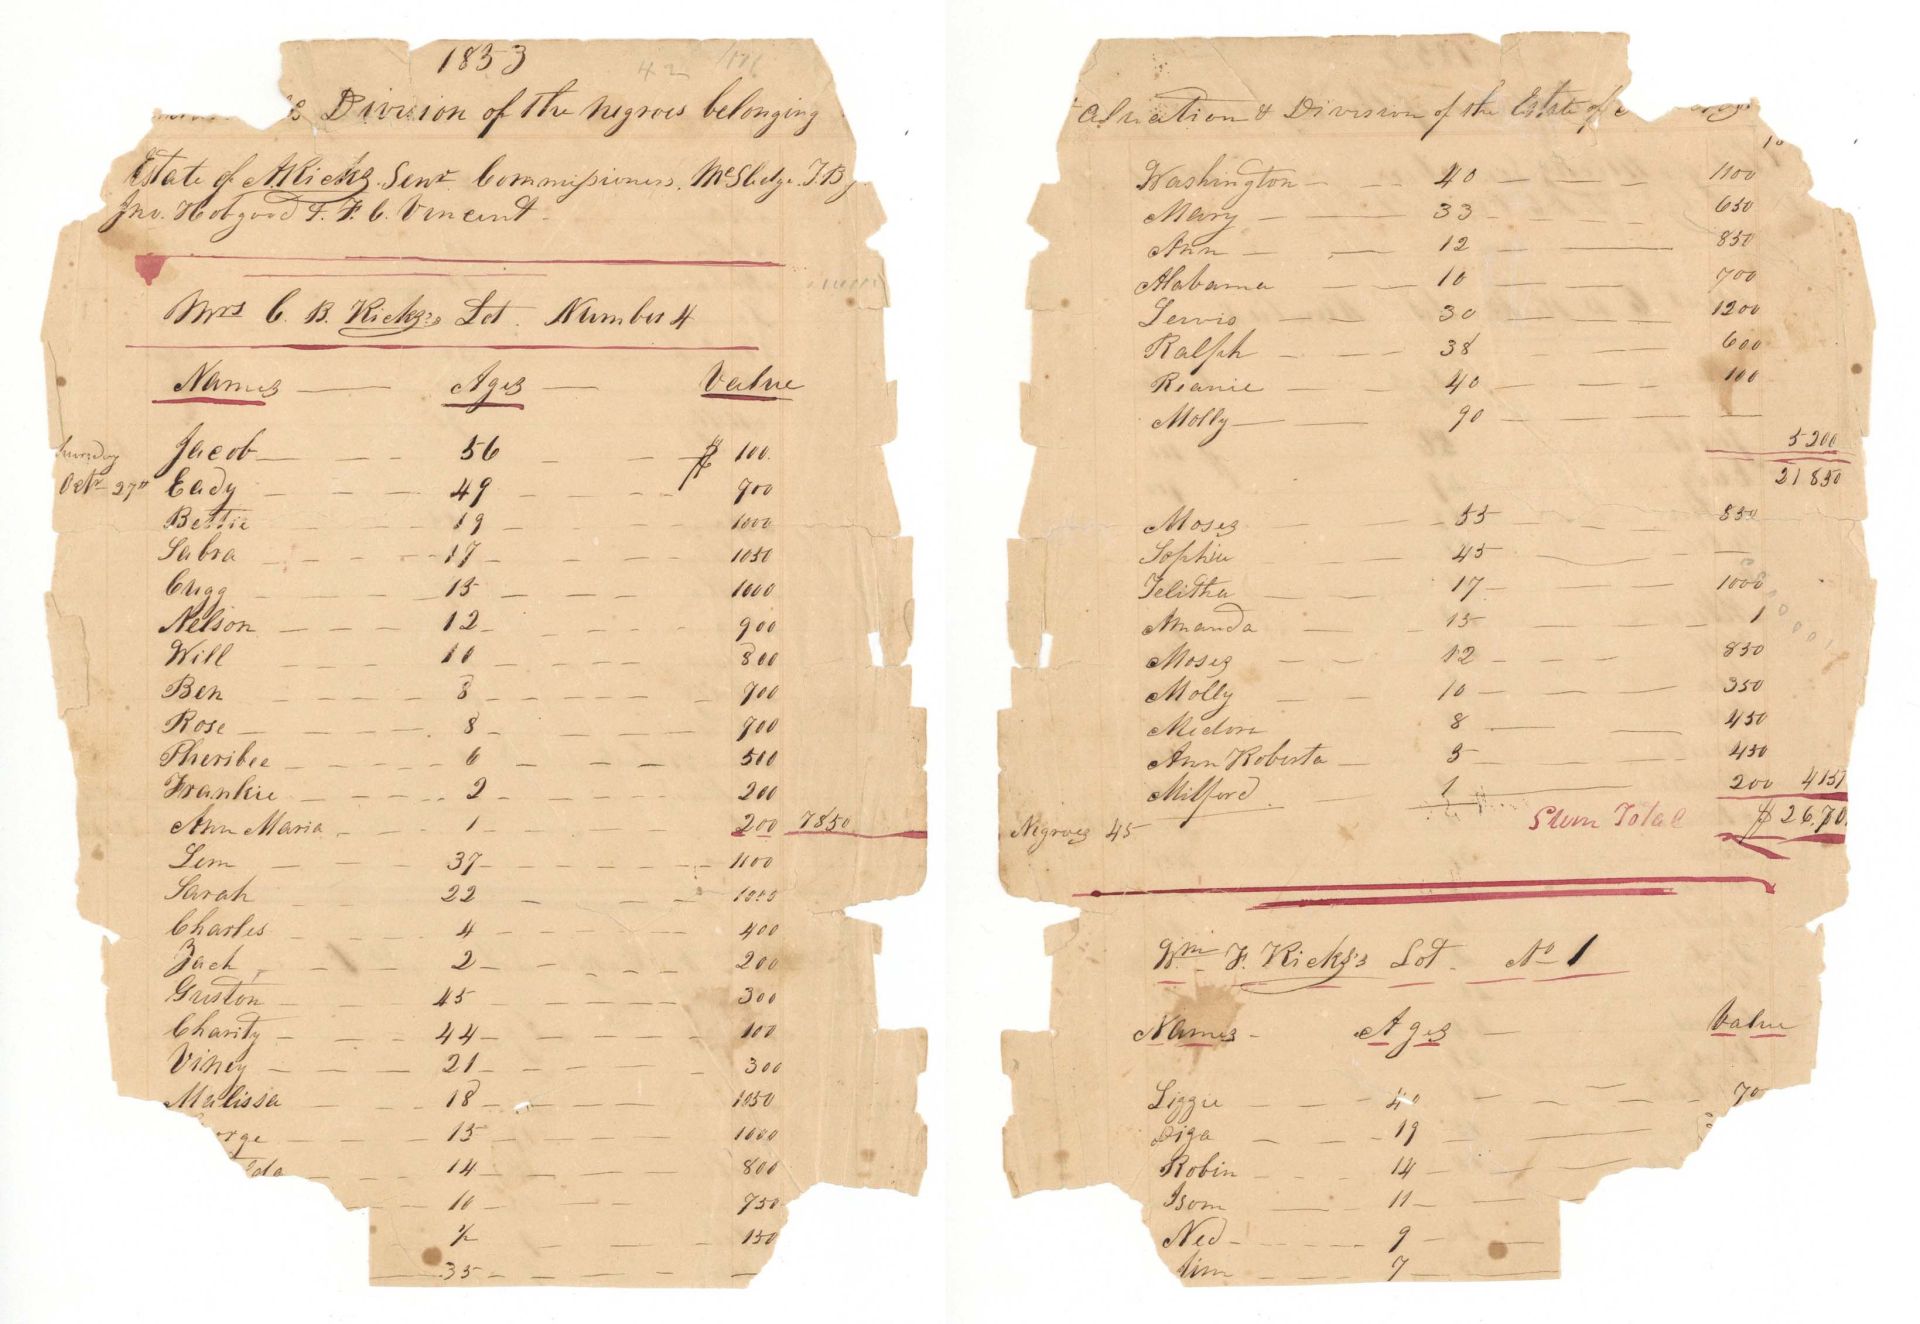 1853
Division of the negroes belonging
Estate of A Ricks Senr. Commissioners. McSledge. T. B
Jno. Hobgood & F. C. Vincent
Mrs C. B. Ricks's Lot. Number 4
Names Ages Value
Jacob 56 $ 100
Octr 27th Eady 49 900
Bettie 19 1000
Sabra 17 1050
Cugg 15 1000
Nelson 12 900
Will 10 800
Ben 8 700
Rose 8 700
Pheribee 6 500
Frankie 2 200
Ann Maria 1 200 7850
Lem 37 1100
Sarah 22 1000
Charles 4 400
Zach 2 200
Guston 45 300
Charity 44 100
Viney 21 300
Malissa 18 1050
orge 15 1000
da 14 800
10 750
1/2 150
35
aluation & Division of the Estate of
Washington 40 1100
Mary 33 650
Ann 12 850
Alabama 10 700
Lewis 30 1200
Ralph 38 600
Reanie 40 100
Molly 90
5200
21850
Moses 55 850
Sophie 45
Telitha 17 1000
Amanda 15 1
Moses 12 850
Molly 10 350
Medora 8 450
Ann Roberta 5 450
Milford 1 200 4151
Negroes 45 Sum Total $ 26.
Wm F. Ricks's Lot No 1
Names Ages Value
Lizzie 40 70
Diza 19
Robin 14
Isom 11
Ned 9
Jim 7